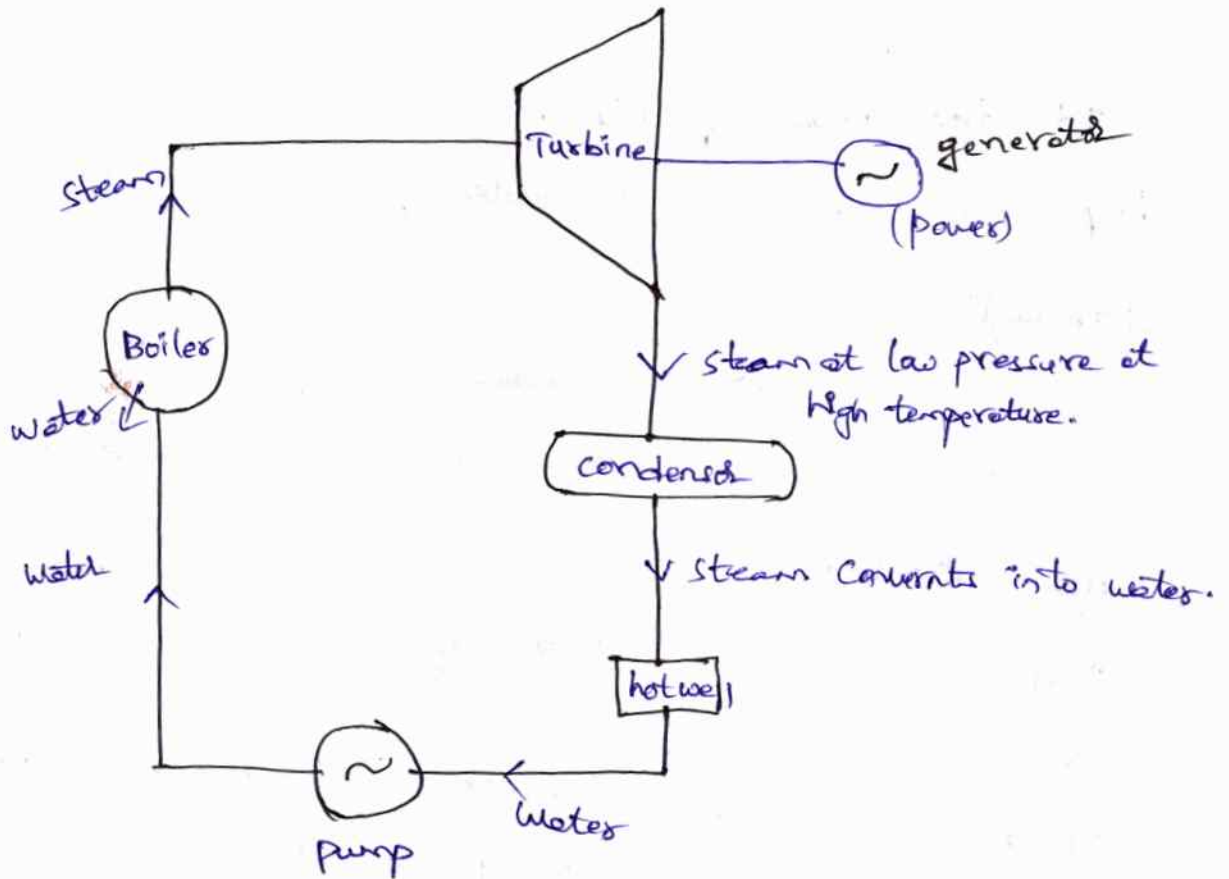 Turbine
generator
(power)
steam
Boiler
water
steam at low pressure at
high temperature.
condensor
water
steam Conuernts into water.
hotwell
water
pump